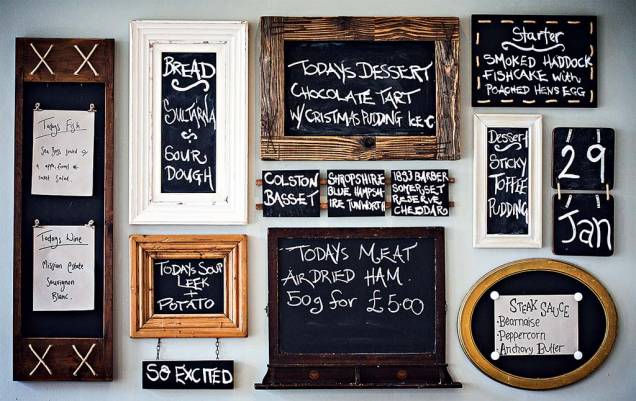 Todays Fish
Sea Bass served
sweet salad.
Todays Wine
Mission Estate
Sauvignon
Blanc.
BREAD
SULTARNA
&
SOUR
DOUGH
TODAYS SOUP
LEEK
+
POTATO
SO EXCITED
TODAYS DESSERT
CHOCOLATE TART
W/ CRISTMAS PUDDING ICE-C
COLSTON
BASSET
SHROPSHIRE
BLUE HAMPSH
IRE TUNWORTH
1833 BARBER
SOMERSET
RESERVE
CHEDDAR
TODAYS MEAT
AIR DRIED HAM.
50g for £5.00
Starter
SMOKED HADDOCK
FISHCAKE with
POACHED HENS EGG
Dessert
STICKY
TOFFEE
PUDDING
29
Jan
STEAK SAUCE
-Bearnaise
-Peppercorn
-Anchovy Butter